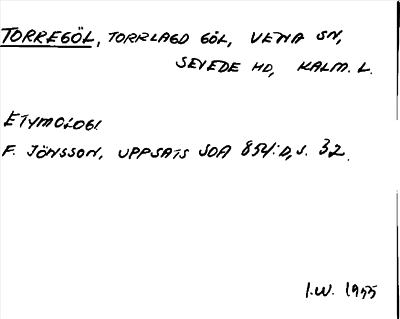 TORREGÖL, TORRLAGD GÖL, VENA SN,
SEVEDE HD, KALM. L.
ETYMOLOGI
F. JÖNSSON, UPPSATS SOA 854:D, S. 32.
I.W. 1955